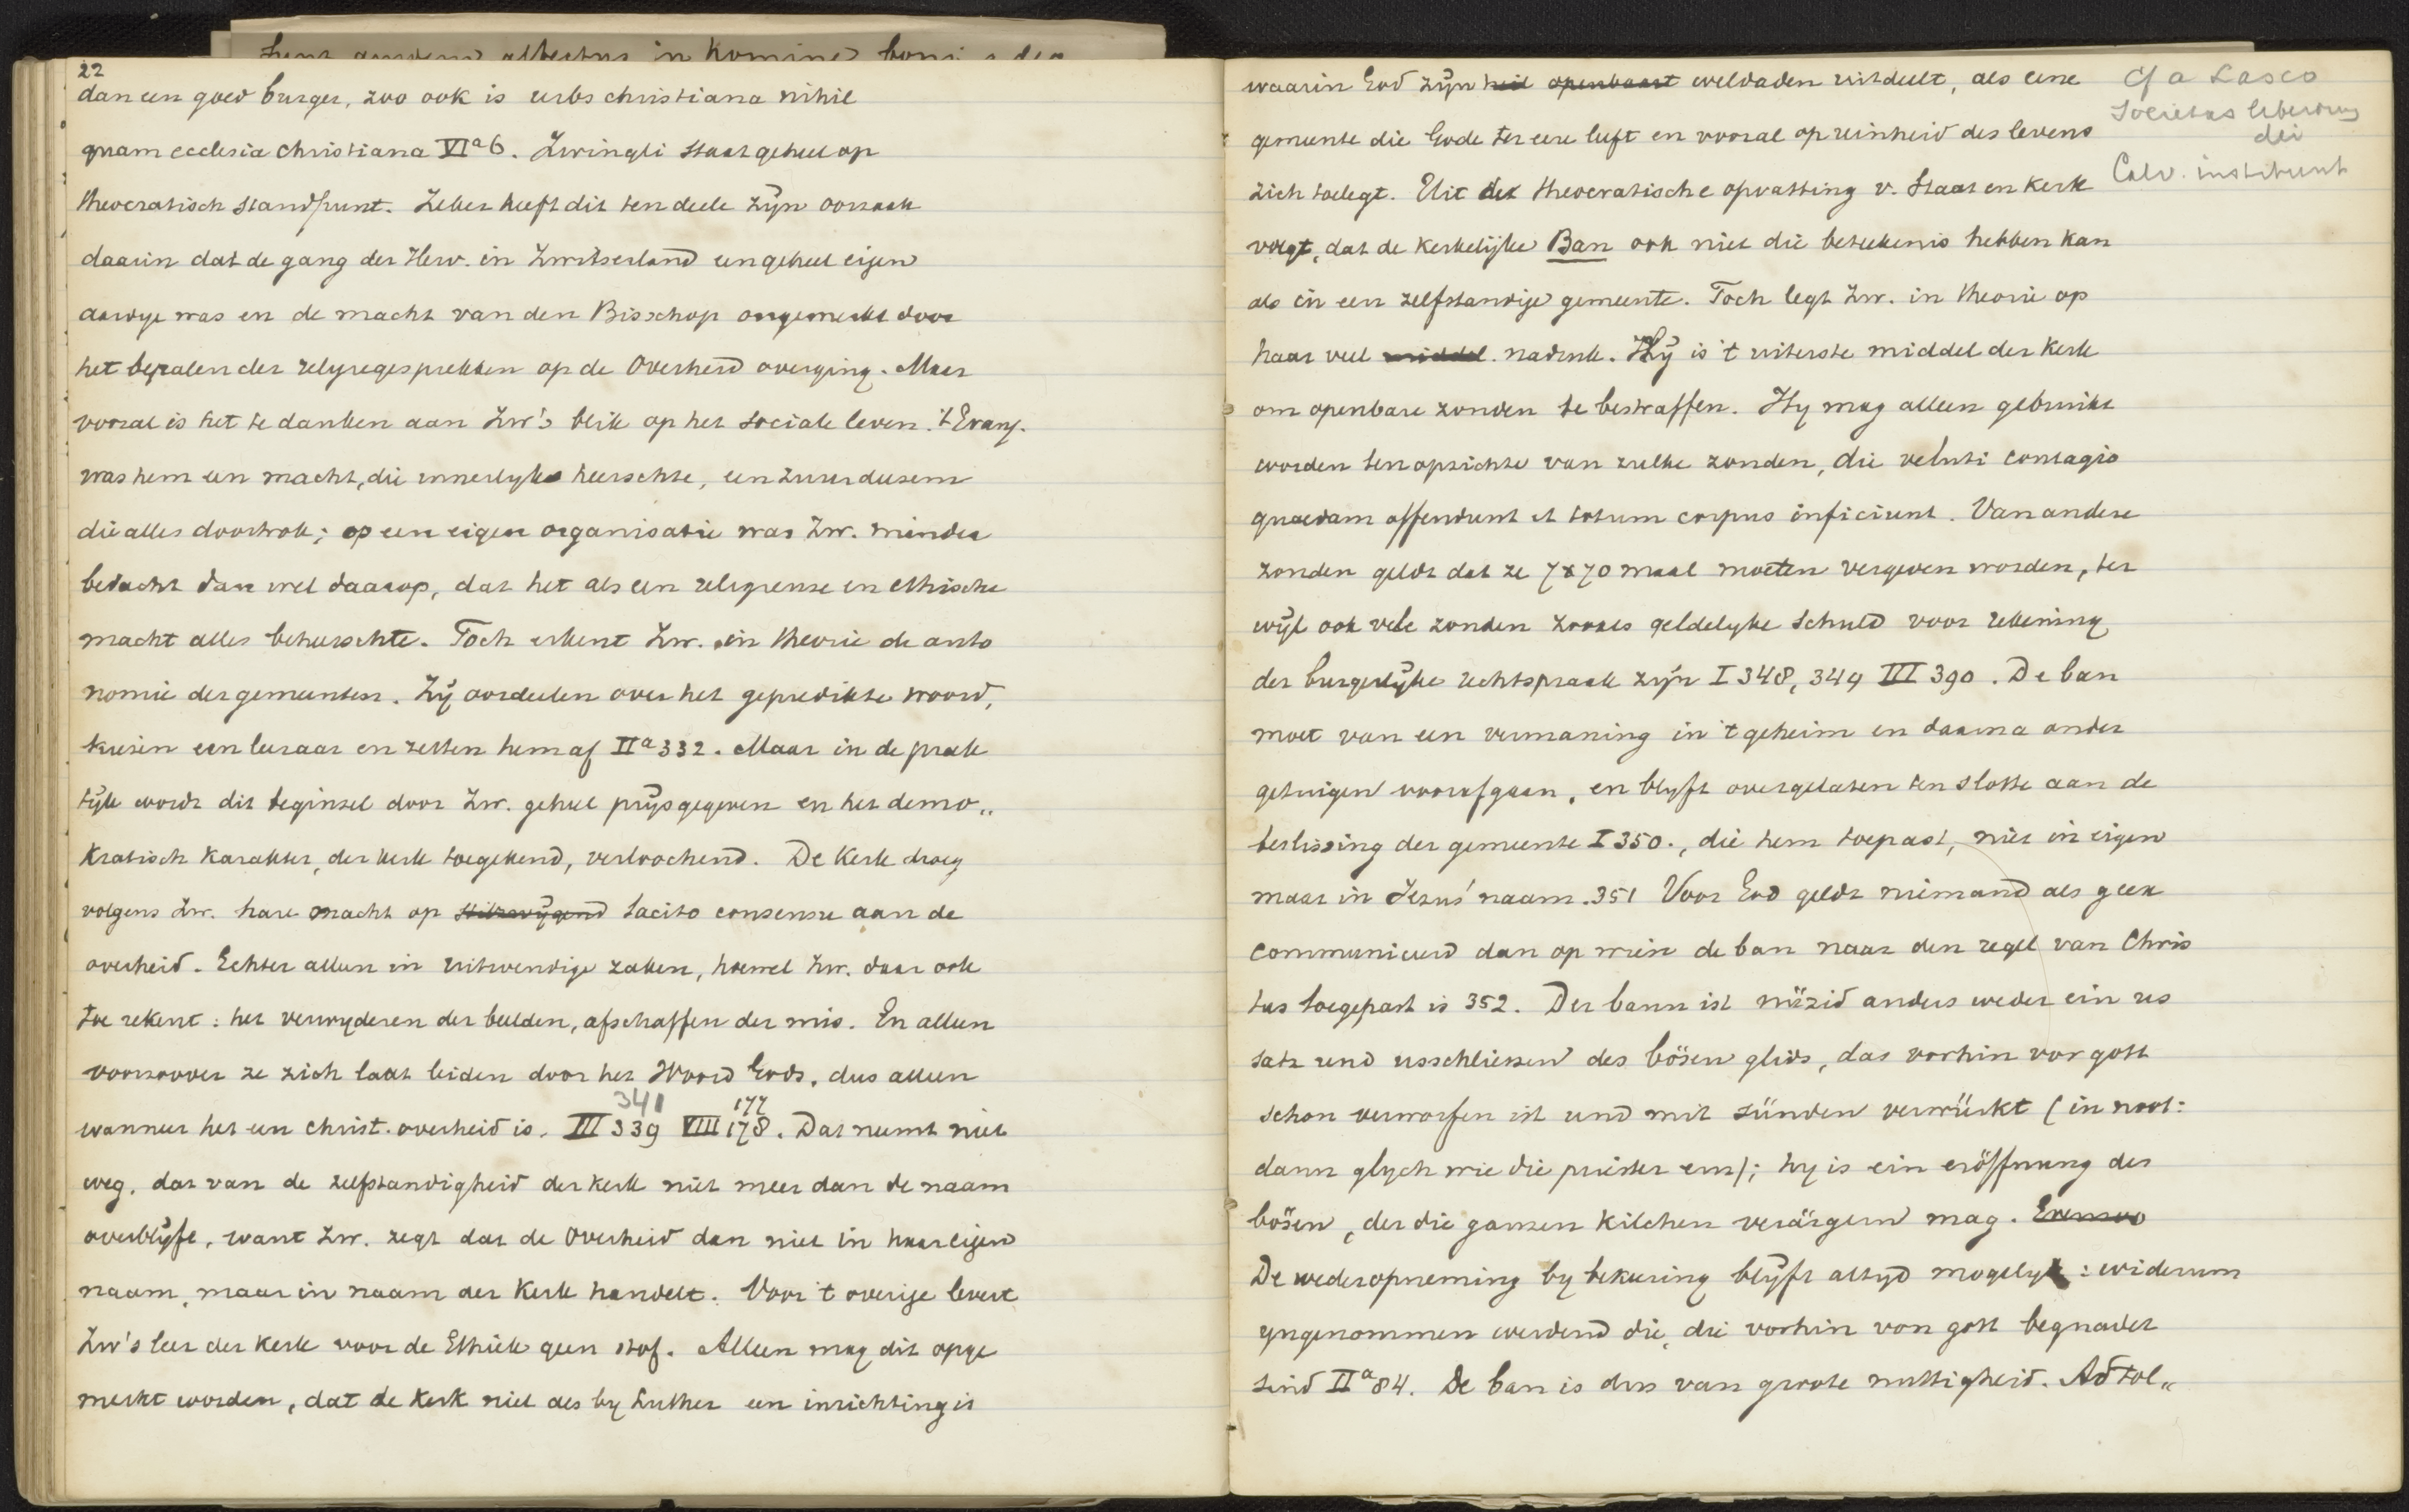 22
dan een goed burger, zoo ook is urbs christiana nihil
quam ecclesia christiana VIa 6. Zwingli staat geheel op
theocratisch standpunt. Zeker heeft dit ten deele zijn oorzaak
daarin dat de gang der Herv. in Zwitserland een geheel eigen
aardige was en de macht van den Bisschop ongemerkt door
het bepalen der religiegesprekken op de Overheid overging. Maar
vooral is het te danken aan Zw's blik op het sociale leven. 't Evang.
was hem een macht, die innerlyk heerschte, een zuurdeesem
die alles doortrok; op een eigen organisatie was Zw. minder
bedacht dan wel daarop, dat het als een religieuse en ethische
macht alles beheerschte. Toch erkent Zw. in theorie de auto
nomie der gemeenten. Zij oordeelen over het gepredikte woord,
kiesen een leeraar en zetten hem af IIa 332. Maar in de prak
tijk wordt dit beginsel door Zw. geheel prijsgegeven en het demo„
kratisch karakter, der kerk toegekend, verloochend. De Kerk droeg
volgens Zw. hare macht op stilzwijgend tacito consensu aan de
overheid. Echter alleen in uitwendige zaken, hoewel Zw. daar ook
toe rekent: het verwyderen der beelden, afschaffen der mis. En alleen
voorzoover ze zich laat leiden door het Woord Gods, dus alleen
341 177
wanneer het een christ. overheid is. III 339 VIII 178. Dat neemt niet
weg, dat van de zelfstandigheid der kerk niet meer dan de naam
overblijft, want Zw. zegt dat de Overheid dan niet in haar eigen
naam, maar in naam der Kerk handelt. Voor 't overige levert
Zw's leer der Kerk voor de Ethiek geen stof. Alleen mag dit opge
merkt worden, dat de Kerk niet als by Luther een inrichting is
waarin God zijn heil openbaart weldaden uitdeelt, als eene
gemeente die Gode ter eere leeft en vooral op reinheid des levens
zich toelegt. Uit der theocratische opvatting v. Staat en Kerk
volgt, dat de kerkelijke Ban ook niet die beteekenis hebben kan
als in een zelfstandige gemeente. Toch legt Zw. in theorie op
haar veel middel nadruk. Hij is 't uiterste middel der Kerk
om openbare zonden te bestraffen. Hy mag alleen gebruikt
worden ten opzichte van zulke zonden, die veluti contagio
quaedam offendunt et totum corpus inficiunt. Van andere
zonden geldt dat ze 7x70 maal moeten vergeven worden, ter
wijl ook vele zonden zooals geldelyke schuld voor rekening
der burgerlyke rechtspraak zijn I 348, 349 III 390. De ban
moet van een vermaning in 't geheim en daarna onder
getuigen voorafgaan, en blyft overgelaten ten slotte aan de
beslissing der gemeente I 350., die hem toepast, niet in eigen
maar in Jezus' naam. 351 Voor God geldt niemand als geex
communiceerd dan op wien de ban naar den regel van Chris
tus toegepast is 352. Der bann ist nüzid anders weder ein us
satz und usschliessen des bösen glids, das vorhin vor gott
schon verworfen ist und mit sünden verwürkt (in noot:
dann glych wie die priester em); hy is ein eröffnung des
bösen, der die ganzen kilchen verärgern mag.
De wederopneming by bekeering blijft altyd mogelyk: widerum
yngenommen werdend die, die vorhin von gott begnadet
sind IIa 84. De ban is dus van groote nuttigheid. Ad tol„
Cf a Lasco
Societas liberorum
dei
Calv. institunt